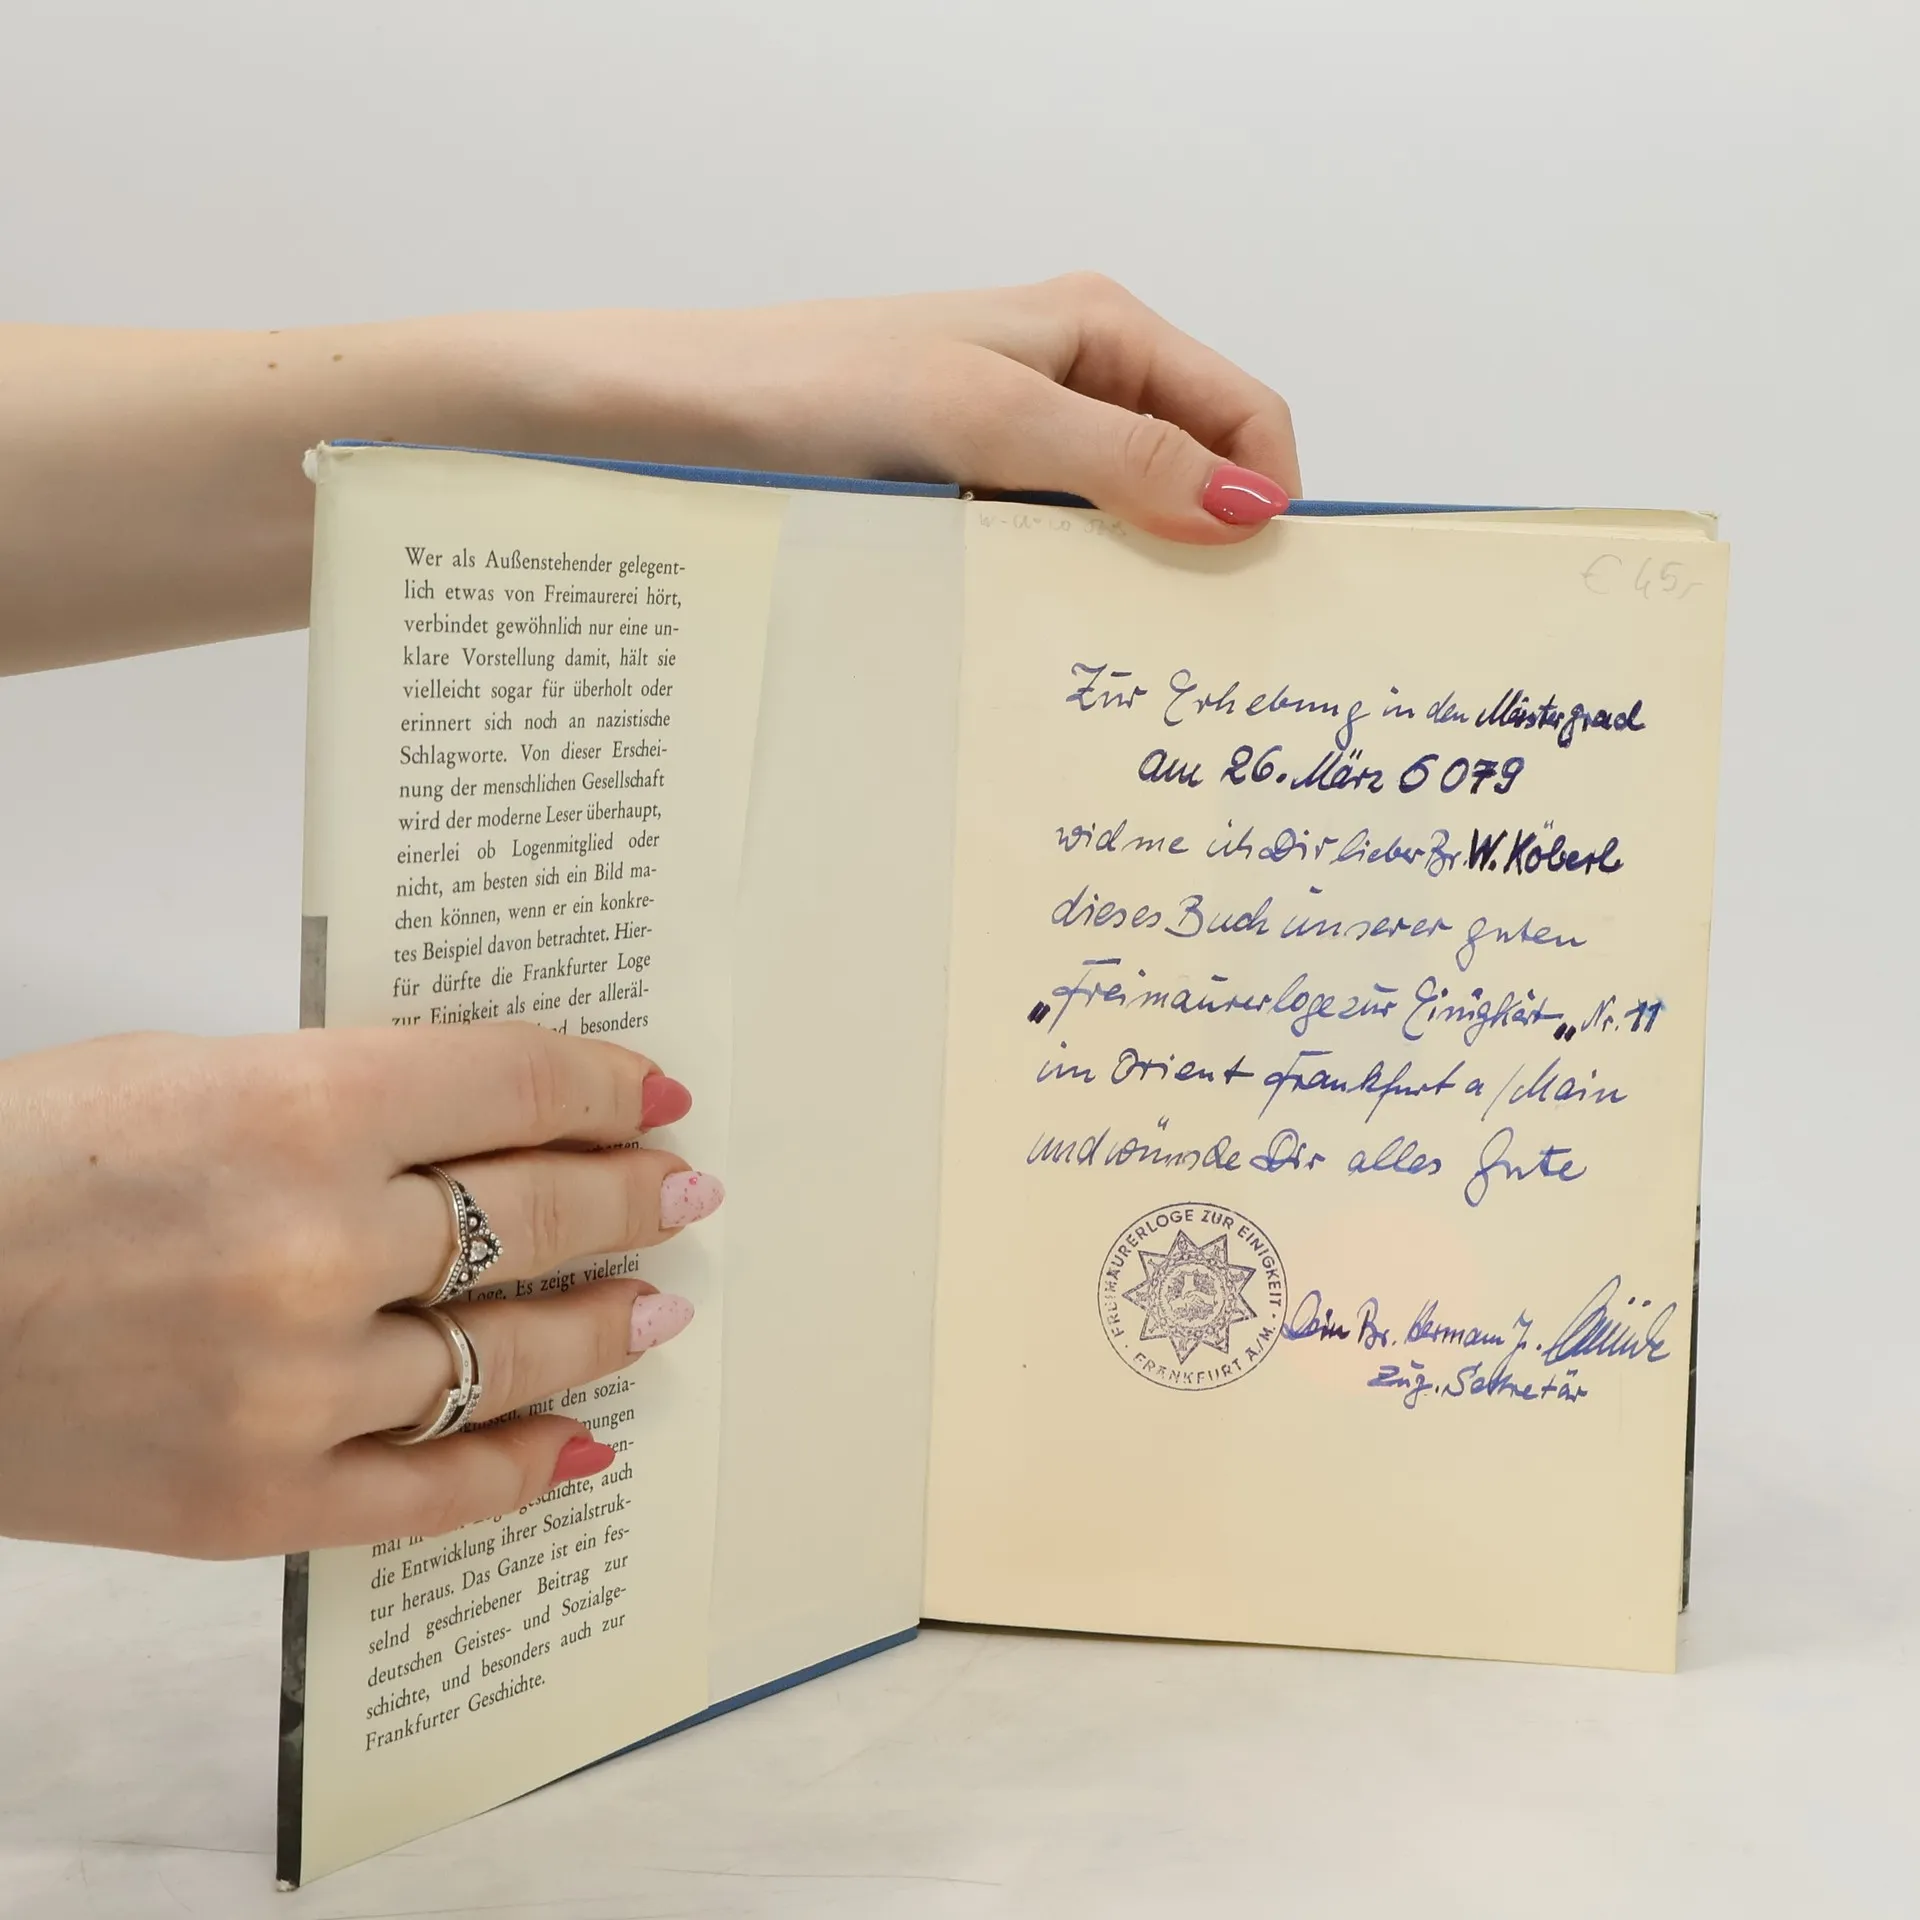 Wer als Außenstehender gelegent-
lich etwas von Freimaurerei hört,
verbindet gewöhnlich nur eine un-
klare Vorstellung damit, hält sie
vielleicht sogar für überholt oder
erinnert sich noch an nazistische
Schlagworte. Von dieser Erschei-
nung der menschlichen Gesellschaft
wird der moderne Leser überhaupt,
einerlei ob Logenmitglied oder
nicht, am besten sich ein Bild ma-
chen können, wenn er ein konkre-
tes Beispiel davon betrachtet. Hier-
für dürfte die Frankfurter Loge
zur Einigkeit als eine der alleräl-
besonders
Loge. Es zeigt vielerlei
mit den sozia-
auch
die Entwicklung ihrer Sozialstruk-
tur heraus. Das Ganze ist ein fes-
selnd geschriebener Beitrag zur
deutschen Geistes- und Sozialge-
schichte, und besonders auch zur
Frankfurter Geschichte.
€ 45,-
Zur Erhebung in den Meistergrad
am 26. März 6079
widme ich Dir lieber Br. W. Köberl
dieses Buch unserer guten
„Freimaurerloge zur Einigkeit„ Nr. 11
im Orient Frankfurt a/Main
und wünsche Dir alles Gute
FREIMAURERLOGE ZUR EINIGKEIT
FRANKFURT A/M.
Dein Br. Hermann J.
Zug. Sekretär